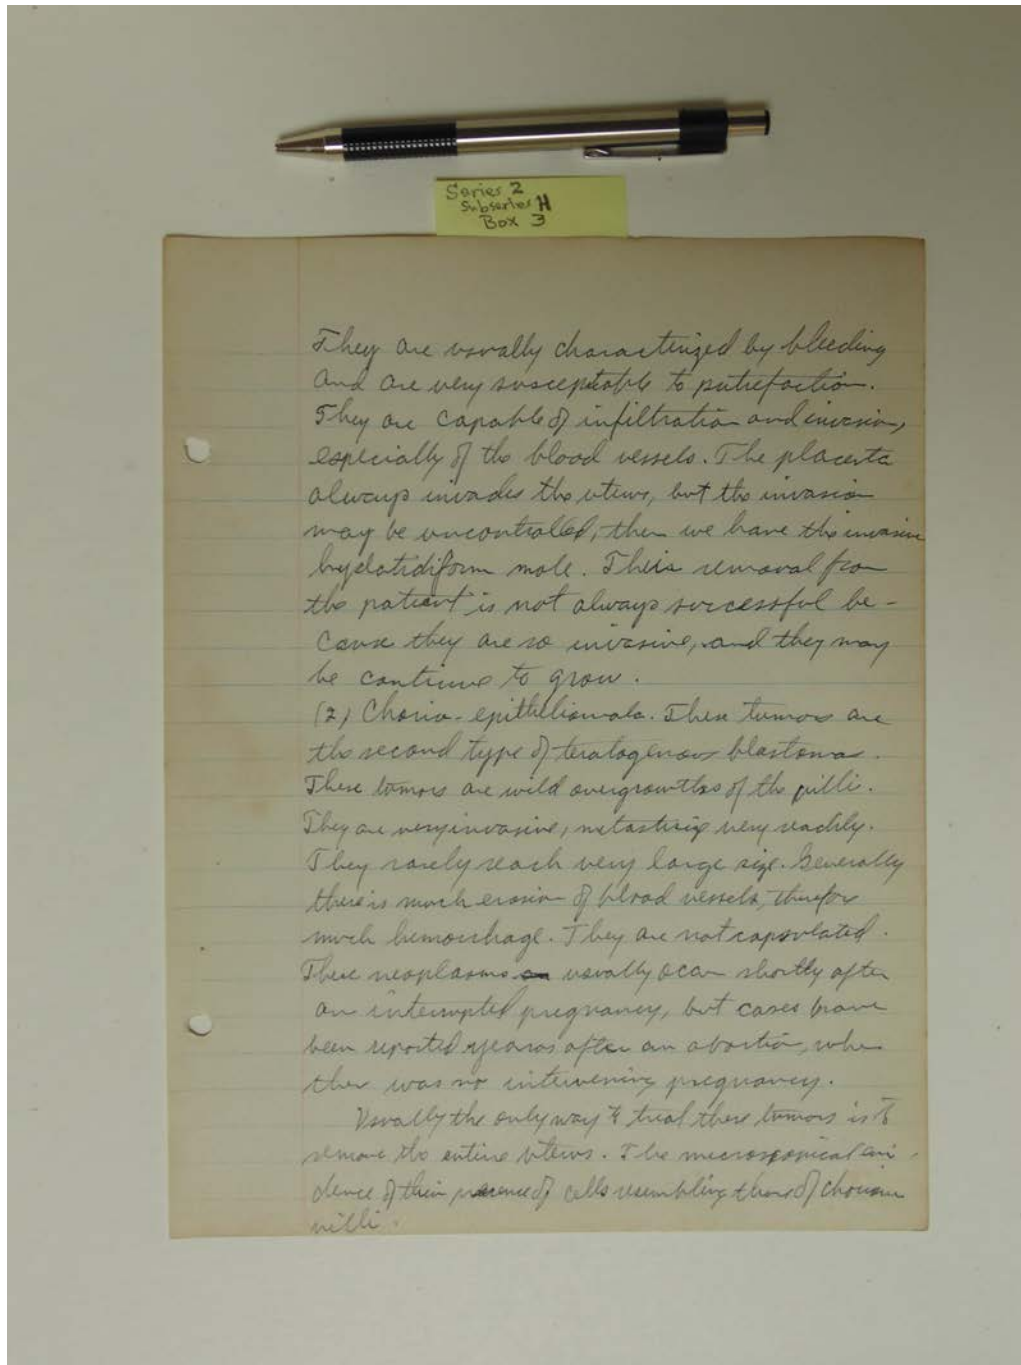 Series 2
Subseries H
Box 3
They are usually characterized by bleeding
and are very susceptable to putrefaction.
They are capable of infiltration and invasion,
especially of the blood vessels. The placenta
always invades the uterus, but the invasion
may be uncontrolled, then we have the invasive
hydatidiform mole. Their removal from
the patient is not always successful be-
cause they are so invasive, and they may
be continue to grow.
(2) Chorio-epitheliomata. These tumors are
the second type of teratogenous blastoma.
These tumors are wild overgrowths of the villi.
They are very invasive, very readily.
They rarely reach very large size. Generally
there is much erosion of blood vessels, therefore
much hemorrhage. They are not capsulated.
These neoplasms usually occur shortly after
an interrupted pregnancy, but cases have
been reported years after an abortion, when
ther was no intervening pregnancy.
Usually the only way to treat these tumors is to
remove the entire uterus. The microscopical evi-
dence of their of cells resembling those of chorionic
villi.